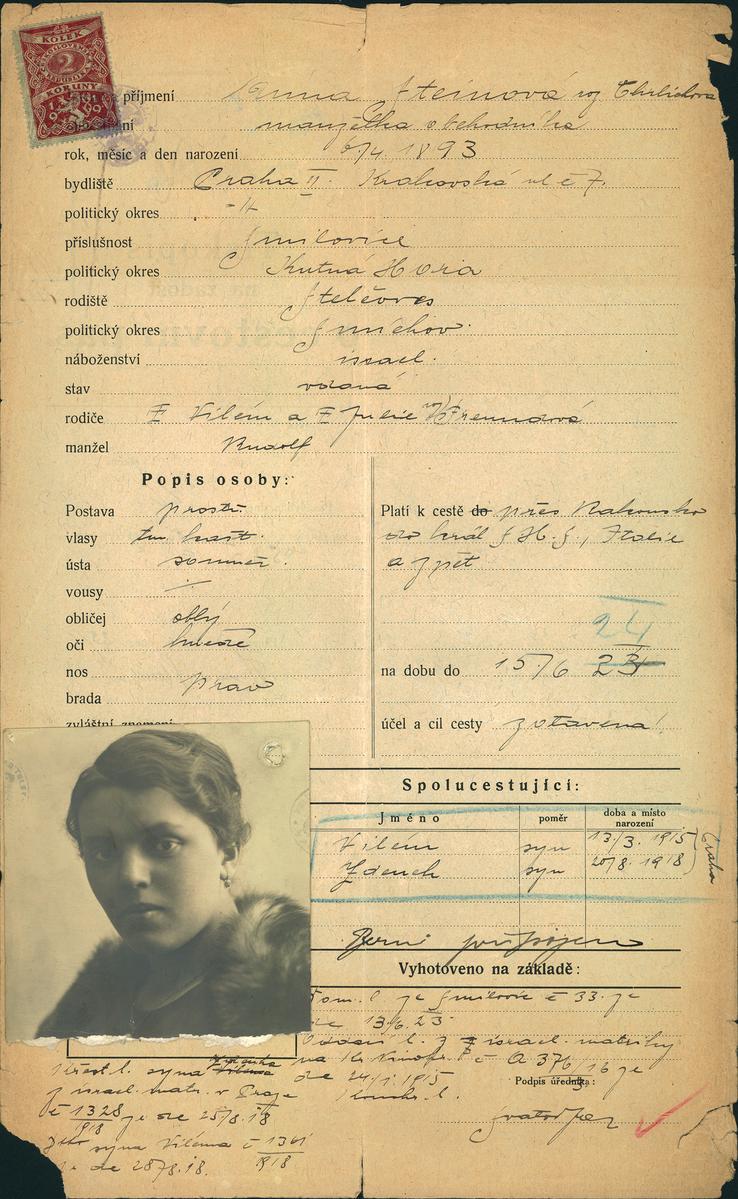 KOLEK
2
KORUNY
příjmení Anna Steinová roz Ehrlichova
manželka obchodníka
rok, měsíc a den narození 6/4 1893
bydliště Praha II. Krakovská ul č 7.
politický okres -"-
příslušnost Smilovice
politický okres Kutná Hora
rodiště Stelčoves
politický okres Smíchov
náboženství israel.
stav vdaná
rodiče Vilém a Julie Freundová
manžel Rudolf
Popis osoby:
Postava prostř.
vlasy tm. kašt.
ústa souměr.
vousy ./.
obličej oblý
oči hnědé
nos
brada prav
zvláštní znamení
Platí k cestě do přes Rakousko
do král S. H. S., Italie
a zpět
24
na dobu do 15/6 23
účel a cíl cesty zotavená
Spolucestující:
Jméno poměr doba a místo narození
Vilém syn 13./3. 1915
Zdenek syn 20/8. 1918
Praha
Vyhotoveno na základě:
Dom. l. Smilovic č 33.
de 13/6. 23
israel. matriky
na č 376
de 24/1. 1915
Podpis úředníka:
Křest l. syna Zdeňka Viléma
z israel. matr. v Praze
č 1328/918 de 25/8. 18
syna Viléma č 1361/918
de 28/8. 18.